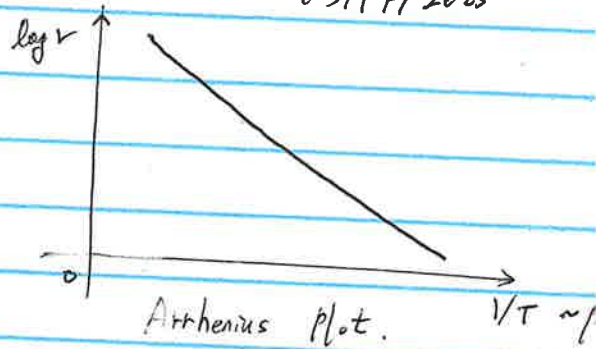 log r
0
1/T ~
Arrhenius Plot.